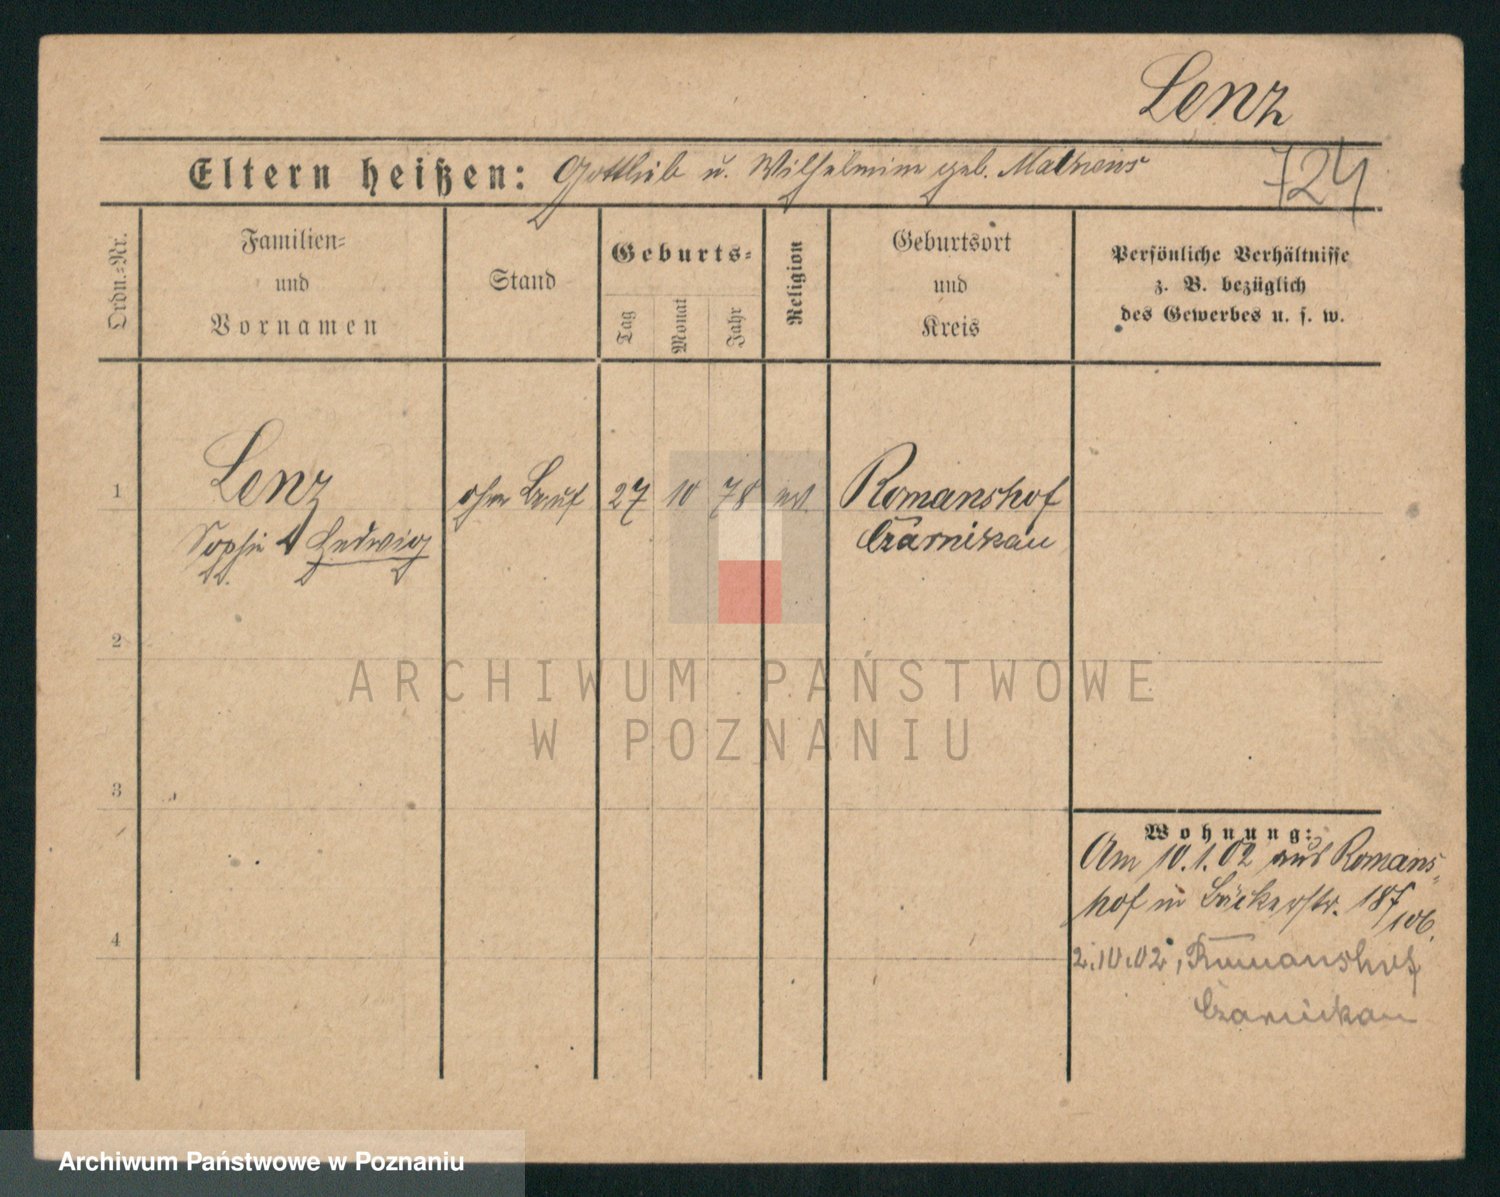 Lenz
Eltern heißen: Gottlieb u. Wilhelmine geb.
724
Ordn.=Nr.
Familien=
und
Vornamen
Stand
Geburts=
Tag
Monat
Jahr
Religion
Geburtsort
und
Kreis
Persönliche Verhältnisse
z. B. bezüglich
des Gewerbes u. s. w.
1
Lenz
Sophie Hedwig
ohne Beruf
27 10 78 ev.
Romanshof
Czarnikau
2
3
4
Wohnung:
Am 10.1.02 aus Romans=
hof in Bäckerstr. 18
2.10.02, Romanshof
Czarnikau
ARCHIWUM PAŃSTWOWE
W POZNANIU
Archiwum Państwowe w Poznaniu